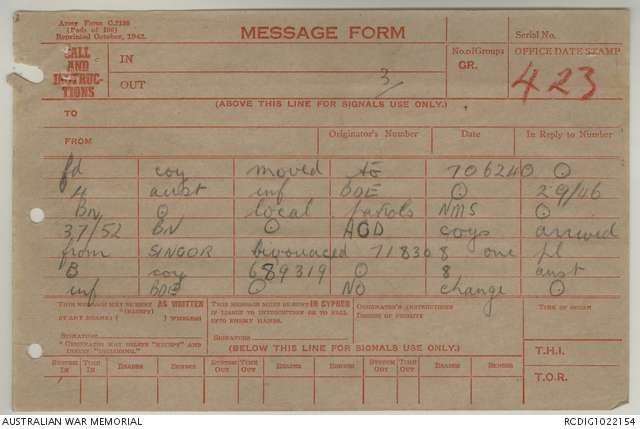 Army Form C.2136
(Pads of 100)
Reprinted October, 1942.
MESSAGE FORM
Serial No.
CALL AND INSTRUC-TIONS
IN
OUT
3/
No. of Groups
GR.
OFFICE DATE STAMP
423
(ABOVE THIS LINE FOR SIGNALS USE ONLY.)
TO
FROM
Originator's Number
Date
In Reply to Number
fd coy moved to 706240 O
4 aust inf BDE O 29/46
BN O local patrols NMS O
37/52 BN O ACD coys arrived
from SINGOR bivouaced 718308 one pl
B coy 689319 O 8 aust
inf BDE O NO change O
THIS MESSAGE MAY BE SENT AS WRITTEN
(EXCEPT)
BY ANY MEANS ( ) WIRELESS
SIGNATURE
"ORIGINATOR MAY DELETE "EXCEPT" AND
INSERT "INCLUDING."
THIS MESSAGE MUST BE SENT IN CYPHER
IF LIABLE TO INTERCEPTION OR TO FALL
INTO ENEMY HANDS.
SIGNATURE
ORIGINATOR'S INSTRUCTIONS
DEGREE OF PRIORITY
TIME OF ORIGIN
(BELOW THIS LINE FOR SIGNALS USE ONLY.)
T.H.I.
SYSTEM IN TIME IN READER SENDER SYSTEM OUT TIME OUT READER SENDER SYSTEM OUT TIME OUT READER SENDER
T.O.R.
AUSTRALIAN WAR MEMORIAL
RCDIG1022154